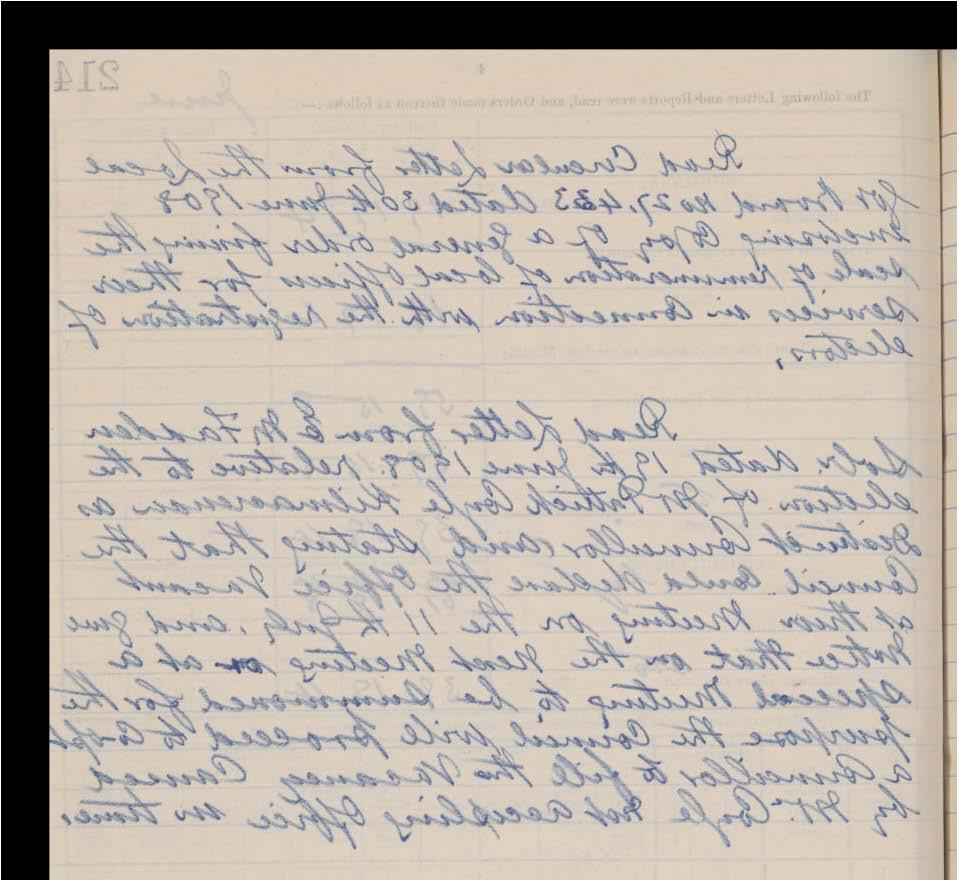 214
4
June
The following Letters and Reports were read, and Orders made thereon as follows:—
Read Circular Letter from the Local
Gov Board No 27,433 dated 30th June 1908
enclosing Copy of a general order fixing the
scale of remuneration of local Officers for their
services in Connection with the registration of
electors,
Read Letter from E McFadden
Solr dated 19th June 1908. relative to the
election of Mr Patrick Coyle Kilmacrenan as
District Councillor and stating that the
Council could declare the Office Vacant
at their Meeting on the 11th July, and give
Notice that on the next Meeting or at a
special Meeting to be Summoned for the
purpose the Council will proceed to Co-opt
a Councillor to fill the Vacancy Caused
by Mr. Coyle not accepting Office in time.